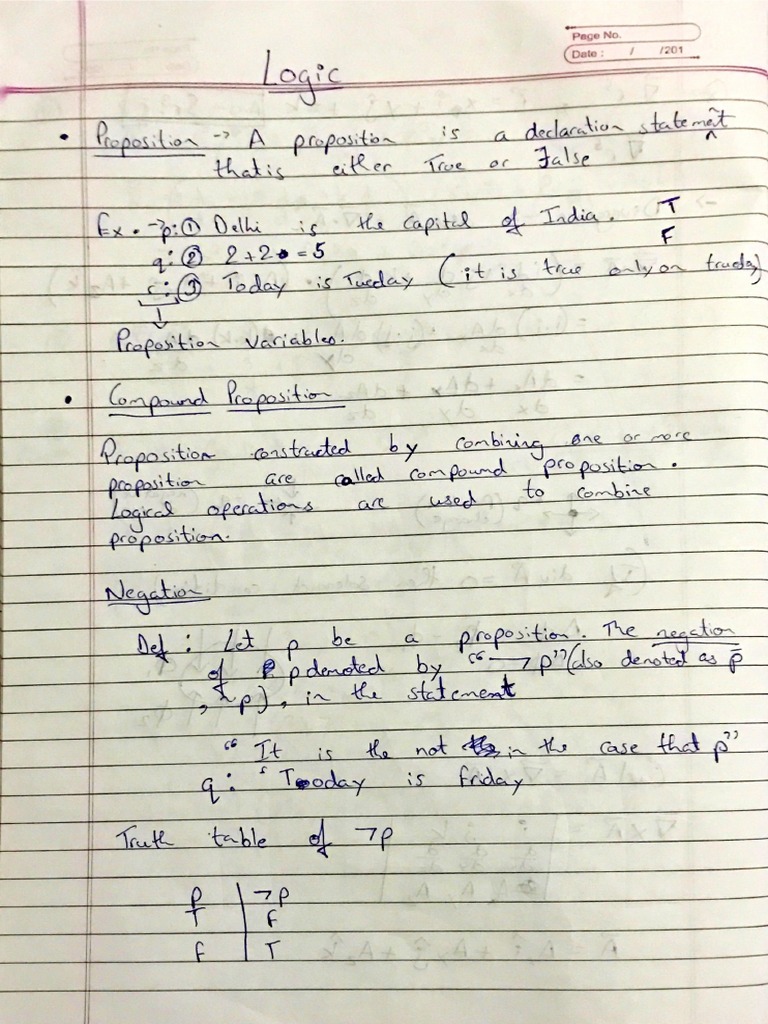 Page No.
Date : / /201
Logic
• Proposition → A proposition is a declaration statement
that is either True or False
Ex. → p: ① Delhi is the capital of India. T
q: ② 2+2 = 5 F
③ Today is Tuesday (it is true only on
Proposition variables.
• Compound Proposition
Proposition constructed by combining one or more
proposition are called compound proposition.
Logical operations are used to combine
proposition.
Negation
Def : Let p be a proposition. The negation
of p denoted by “¬p” (also denoted as p̄
, ~p), in the statement
“ It is the not in the case that p”
q: “ Tooday is friday
Truth table of ¬p
p | ¬p
T | F
F | T